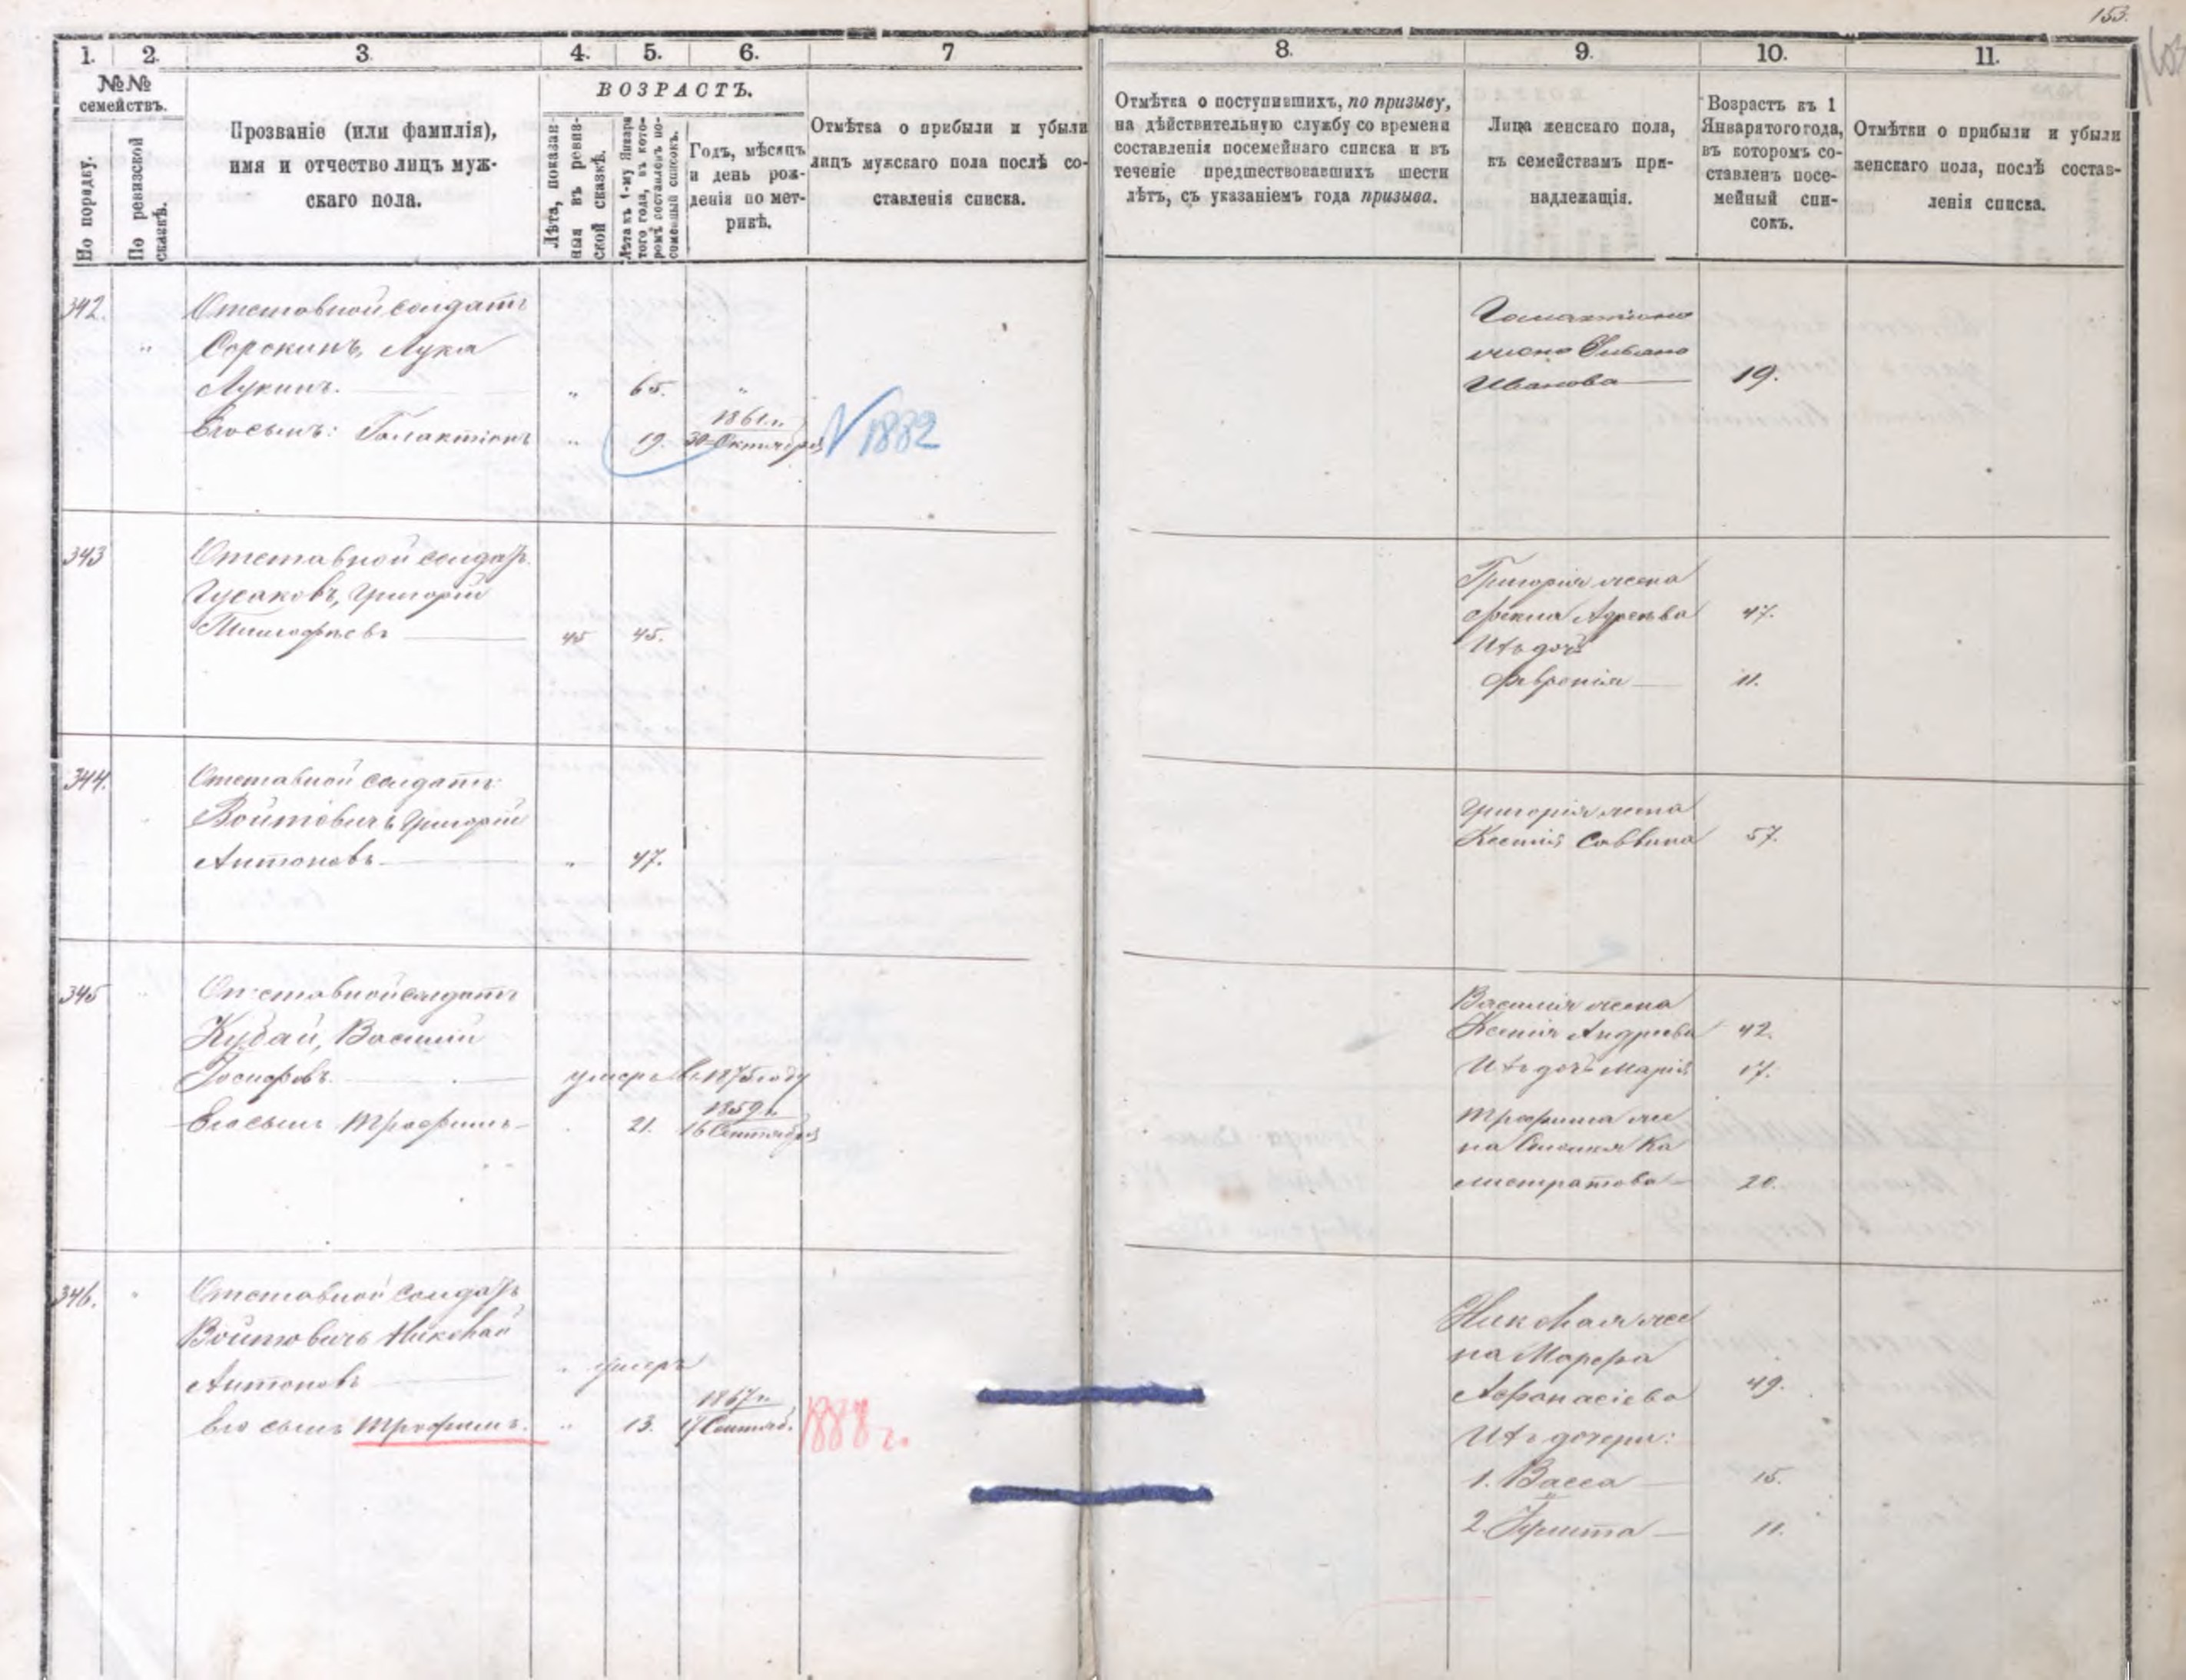 153.
1. 2. 3. 4. 5. 6. 7 8. 9. 10. 11.
№№ семействъ.
По порядку.
По ревизской сказкѣ.
Прозваніе (или фамилія),
имя и отчество лицъ муж-
скаго пола.
ВОЗРАСТЪ.
Лѣта, показан-
ныя въ ревиз-
ской сказкѣ.
Лѣта къ 1-му Января
того года, въ кото-
ромъ составленъ по-
семейный списокъ.
Годъ, мѣсяцъ
и день рож-
денія по мет-
рикѣ.
Отмѣтка о прибыли и убыли
лицъ мужскаго пола послѣ со-
ставленія списка.
Отмѣтка о поступившихъ, по призыву,
на дѣйствительную службу со времени
составленія посемейнаго списка и въ
теченіе предшествовавшихъ шести
лѣтъ, съ указаніемъ года призыва.
Лица женскаго пола,
къ семействамъ при-
надлежащія.
Возрастъ къ 1
Января того года,
въ которомъ со-
ставленъ посе-
мейный спи-
сокъ.
Отмѣтки о прибыли и убыли
женскаго пола, послѣ состав-
ленія списка.
342.
Отставной солдатъ
Сорокинъ, Лука
Лукинъ. " 65. "
Его сынъ: Галактіонъ " 19. 1861 г. 30 Октября 1882
Галактіона
жена
Иванова 19.
343
Отставной солдатъ
Гусаковъ, Григорій
Тимофѣевъ 45 45.
Григорія жена
Фекла 47.
Ихъ дочь
Февронія 11.
344.
Отставной солдатъ
Войтовичъ Григорій
Антоновъ " 47.
Григорія жена
Ксенія Саввина 57.
345
Отставной солдатъ
Кубай, Василій
Іосифовъ умеръ въ 1875 году
Его сынъ Трофимъ 21. 1859 г. 16 Сентября
Василія жена
Ксенія Андреева 42.
Ихъ дочь Марія 17.
Трофима же
на Ка
листратова 20.
346.
Отставной солдатъ
Войтовичъ Николай
Антоновъ " умеръ
Его сынъ Трофимъ. " 13. 1867 г. 17 Сентяб. 1888 г.
Николая же
на Марѳа
Афанасіева 49.
Ихъ дочери:
1. Васса 15.
2. 11.